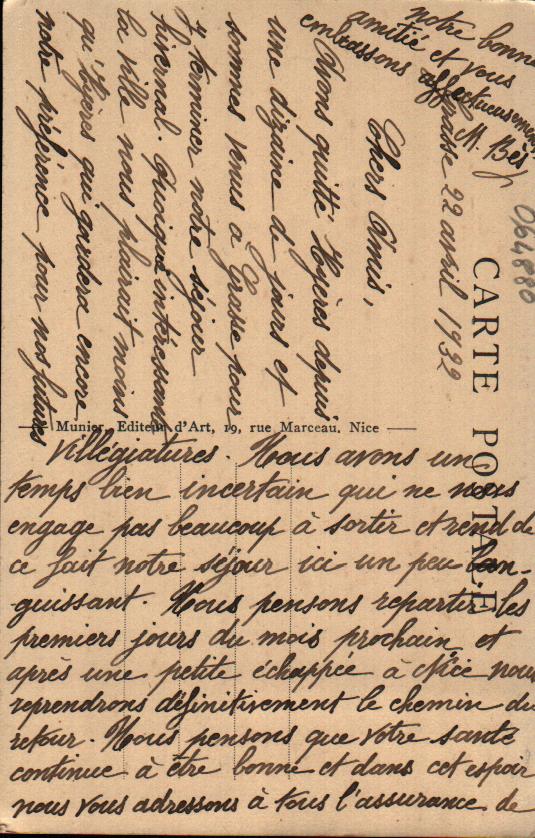 CARTE POSTALE
Munier, Editeur d'Art, 19, rue Marceau, Nice
064880
Grasse 22 avril 1932
Chers Amis,
Avons quitté Hyères depuis
une dizaine de jours et
sommes venus à Grasse pour
y terminer notre séjour
hivernal. Quoique intéressante
la ville nous plairait moins
qu'Hyères qui gardera encore
notre préférence pour nos futures
villégiatures. Nous avons un
temps bien incertain qui ne nous
engage pas beaucoup à sortir et rend de
ce fait notre séjour ici un peu lan-
guissant. Nous pensons repartir les
premiers jours du mois prochain et
après une petite échappée à Nice nous
reprendrons définitivement le chemin du
retour. Nous pensons que votre santé
continue à être bonne et dans cet espoir
nous vous adressons à tous l'assurance de
notre bonne
amitié et vous
embrassons affectueusement
M. Bès